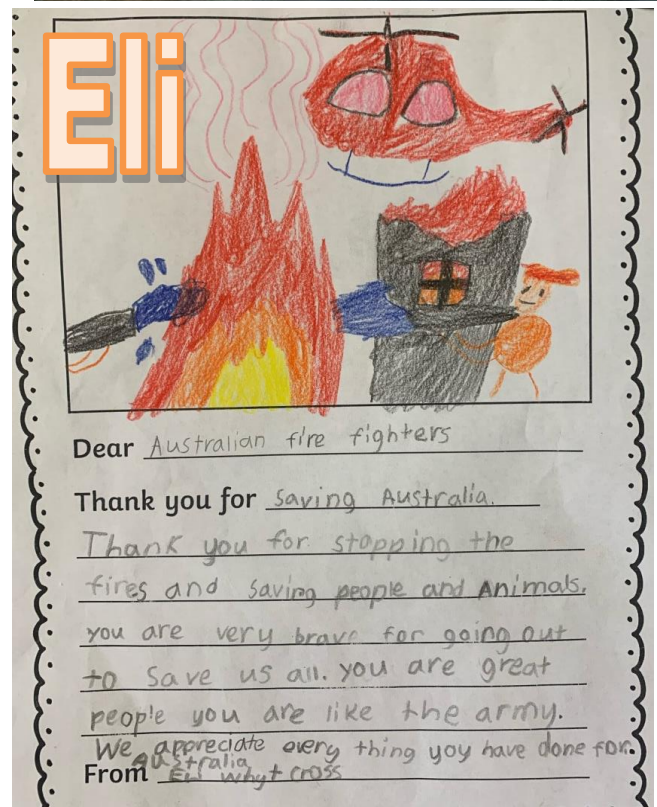 Eli
Dear Australian fire fighters
Thank you for saving Australia.
Thank you for stopping the
fires and saving people and Animals.
you are very brave for going out
to save us all. you are great
people you are like the army.
We appreciate every thing you have done for.
australia
From Eli whyt cross